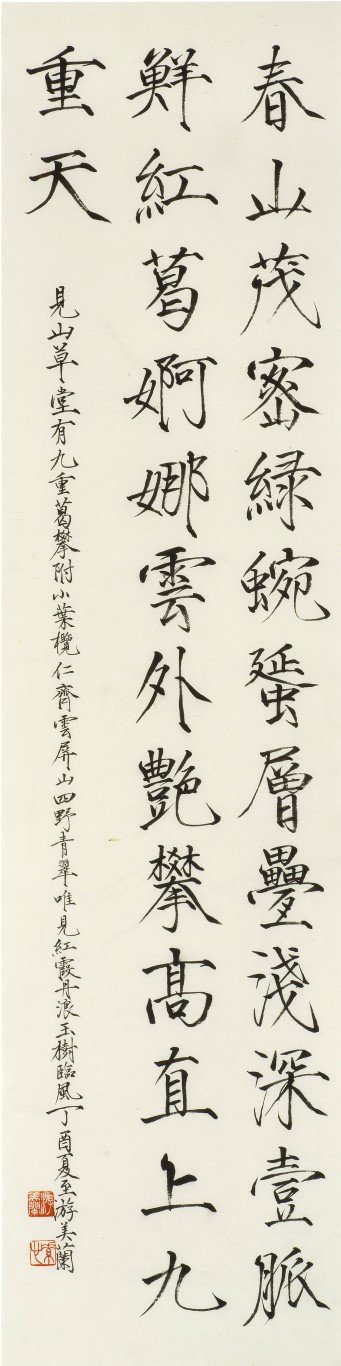 春山茂密綠蜿蜑層疊淺深壹脈
鮮紅葛婀娜雲外艷攀高直上九
重天
見山草堂有九重葛攀附小葉欖仁齊雲屏山四野青翠唯見紅霞丹浪玉樹臨風丁酉夏至游美蘭